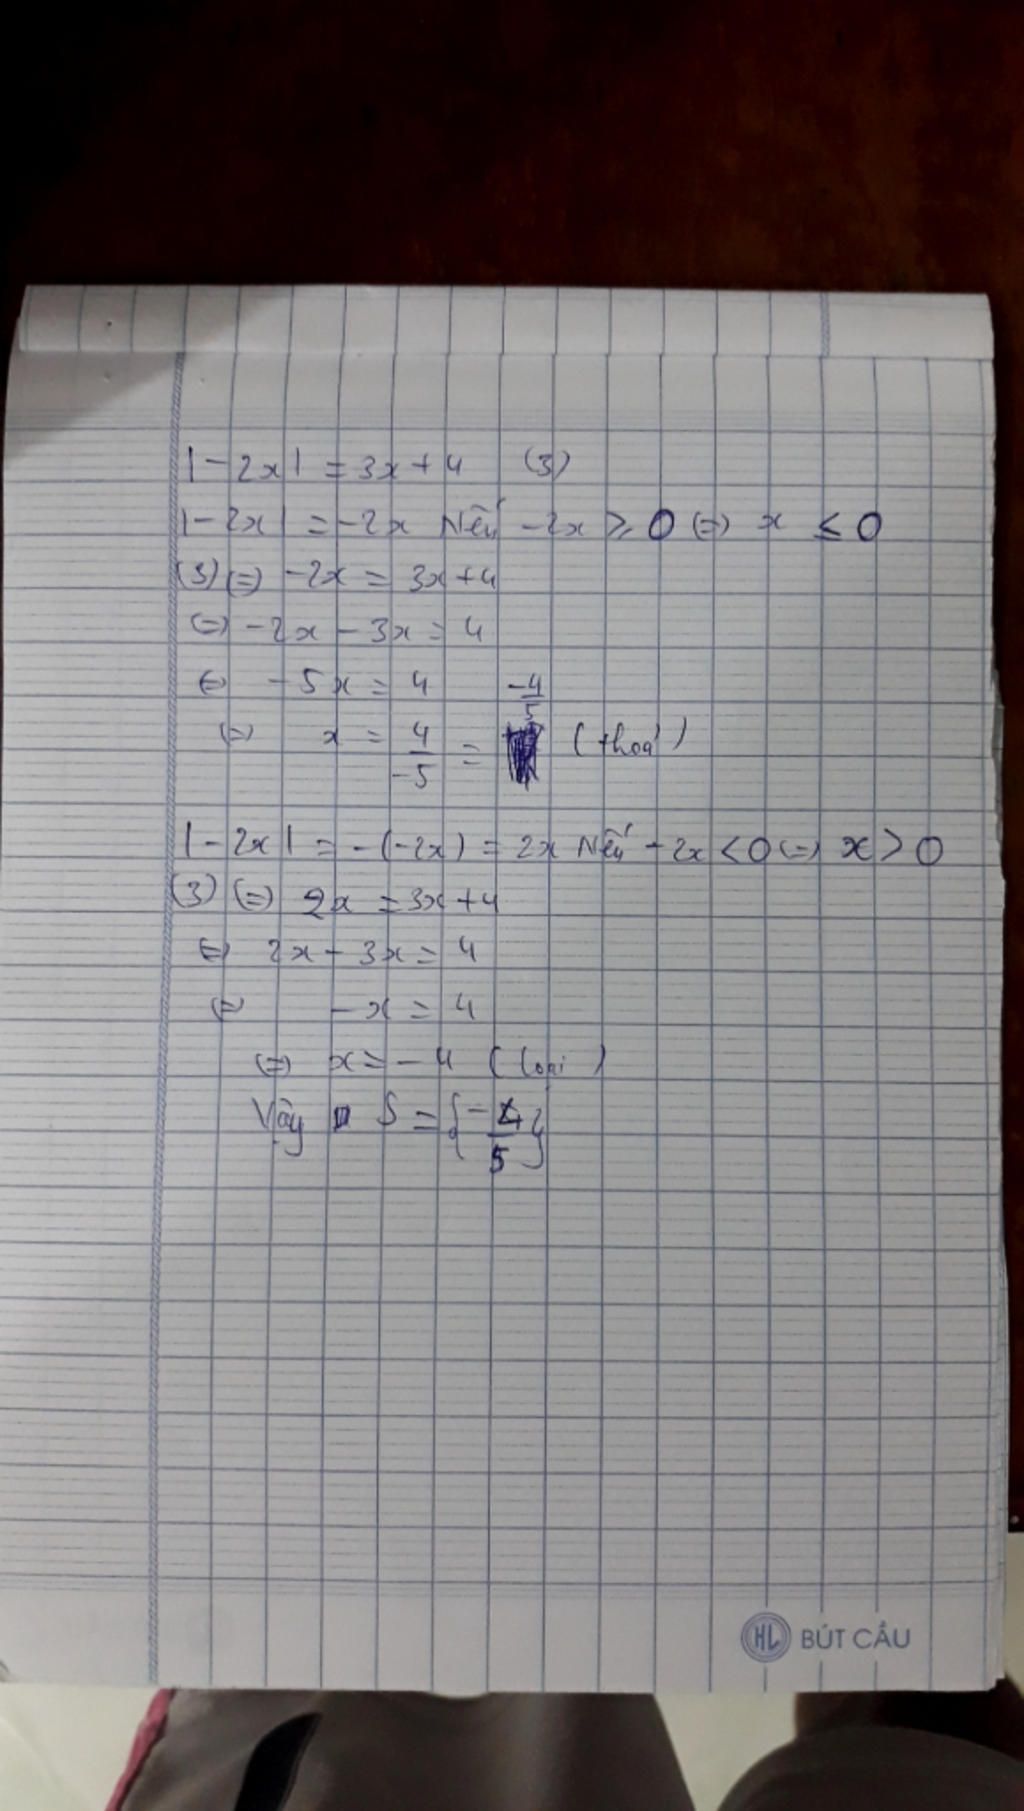 |-2x| = 3x+4 (3)
|-2x| = -2x Nếu -2x ≥ 0 (=) x ≤ 0
(3) (=) -2x = 3x+4
(=) -2x - 3x = 4
(=) -5x = 4
(=) x = 4/-5 = -4/5 (thoả)
|-2x| = -(-2x) = 2x Nếu -2x < 0 (=) x > 0
(3) (=) 2x = 3x+4
(=) 2x - 3x = 4
(=) -x = 4
(=) x = -4 (loại)
Vậy S = {-4/5}
HL BÚT CẦU